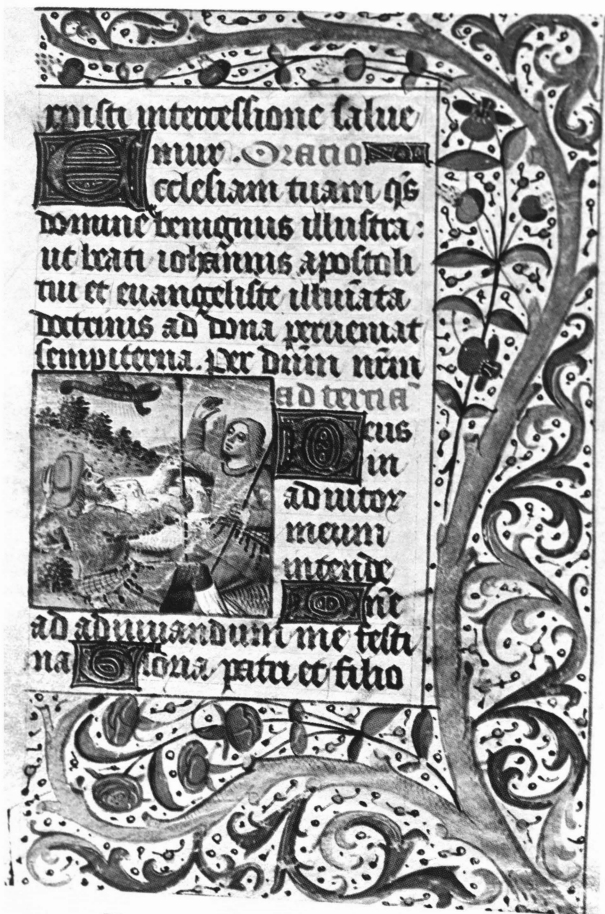 xpisti intercessione salue
mur. Oratio
Ecclesiam tuam q̄s
domine benignus illustra:
ut beati iohannis apostoli
tui et euangeliste illuīata
doctrinis ad dona perueniat
sempiterna. Per dn̄m nr̄m
ad terciā
Deus
in
adiutor
meum
intende
Dn̄e
ad adiuuandum me festi
na Gloria patri et filio